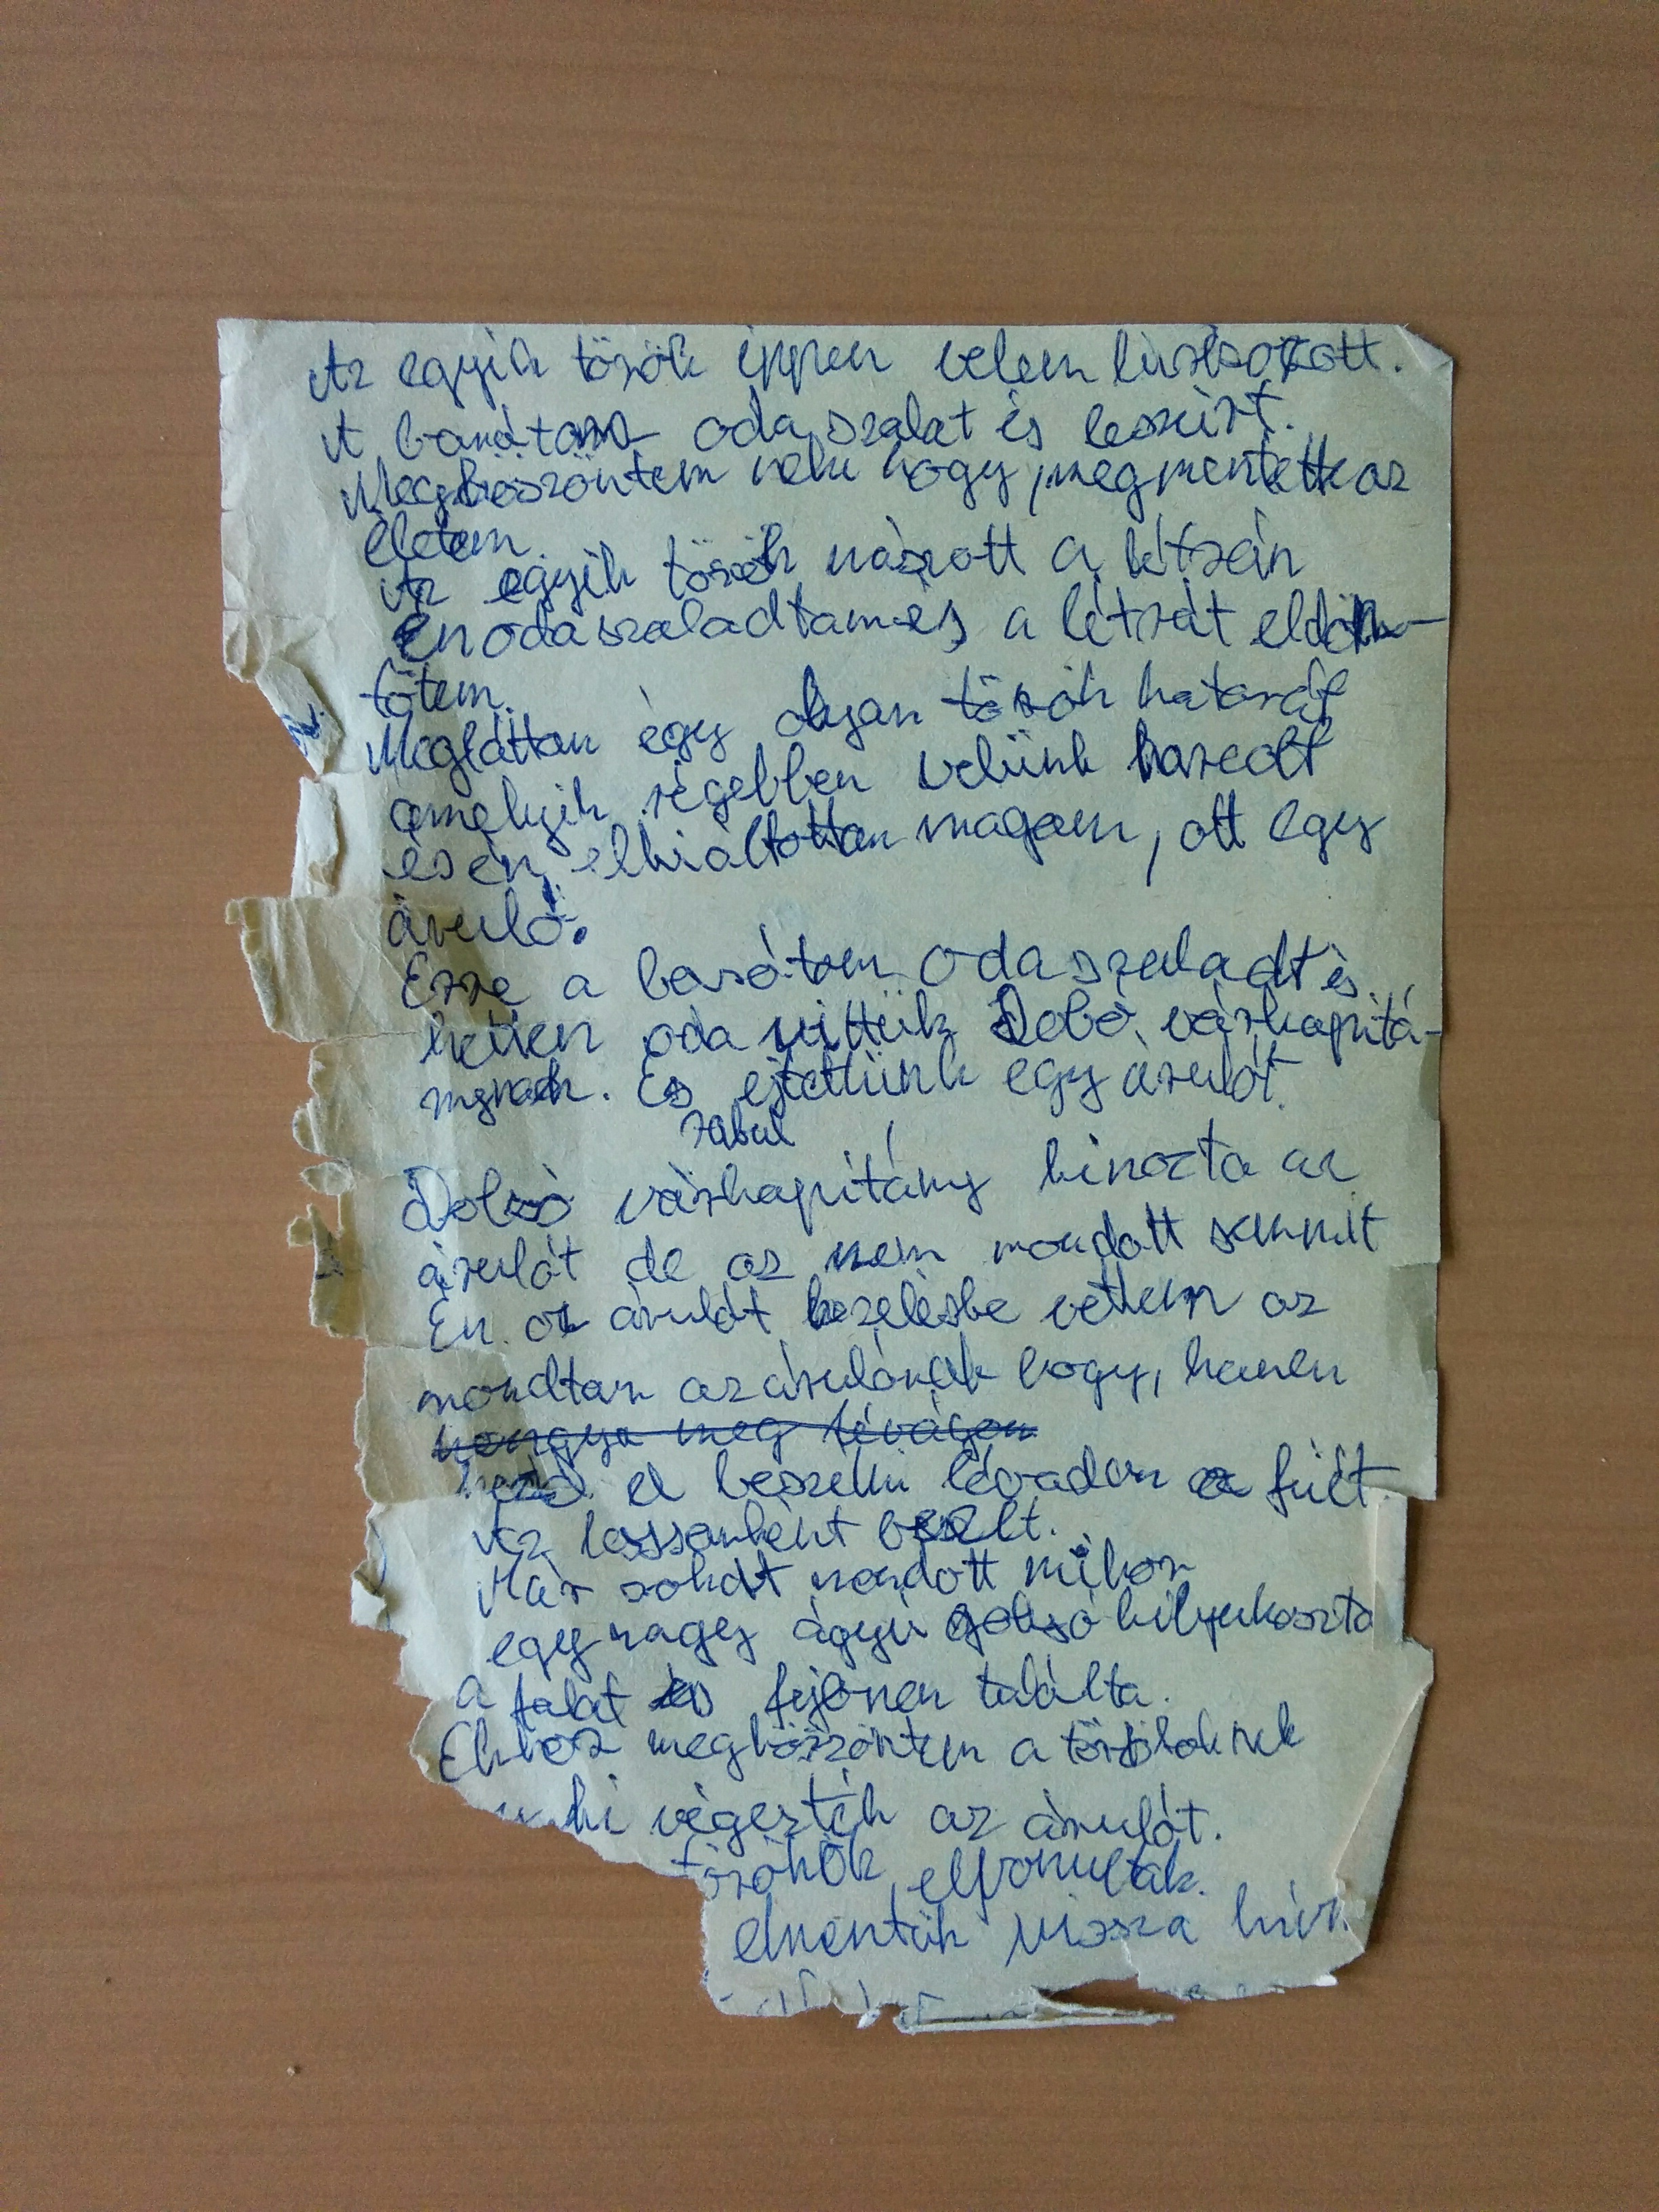 Az egyik török éppen velem
A barátom oda szalat és leszúrt.
Megköszöntem neki hogy, megmentette az
életem.
Az egyik török mászott a létrán
én oda szaladtam és a létrát eldön-
tötem.
Megláttam egy olyan török katonát
amelyik régebben velünk harcolt
és én elkiáltottam magam, ott egy
áruló.
Erre a barátom oda szaladt és
ketten oda vittük Dobó várkapitá-
nynak. És ejtettünk egy árulót.
rabul
Dobó várkapitány kínozta az
árulót de az nem mondott semmit
Én az árulót kezelésbe vettem az
mondtam az árulónak hogy, ha nem
mongya meg lévágom
kezd el beszélni lévadom a fülét.
Az lassanként beszélt.
Már sokat mondott mikor
egy nagy ágyú golyó kilyukaszta
a falat és fejönen találta.
Ehhez megköszöntem a törököknek
ki végezték az árulót.
törökök elvonultak.
elmentük vissza